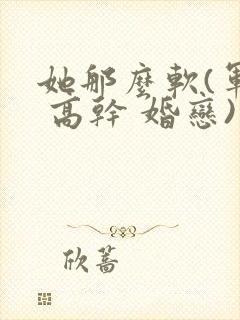 她那麼軟(軍
高幹 婚戀)
欣蒿